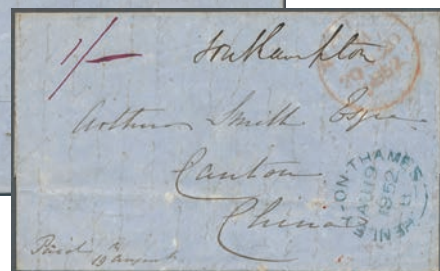 1/- Southampton
PAID
20
1852
Arthur Smith Esqre
Canton
China
HENLEY-ON-THAMES
AU 19
1852
B
Paid
19 August